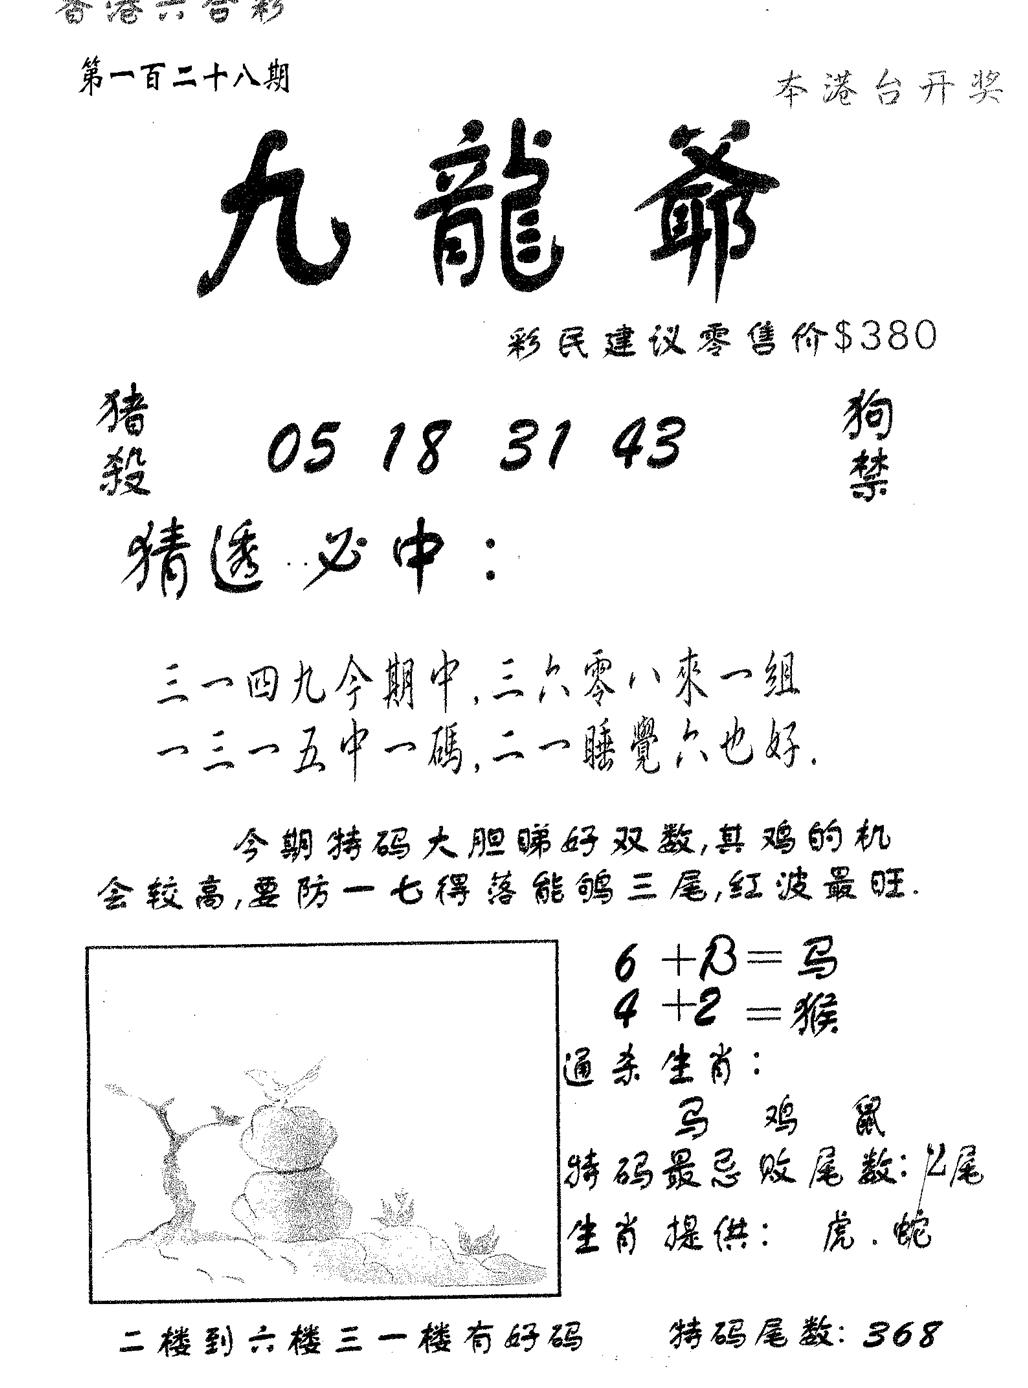 香港六合彩
第一百二十八期
本港台开奖
九龍爺
彩民建议零售价$380
猪殺 05 18 31 43 狗禁
猜透必中：
三一四九今期中,三六零八來一組
一三一五中一碼,二一睡覺六也好.
今期特码大胆睇好双数,其鸡的机
会较高,要防一七得落能鸲三尾,红波最旺.
6+13=马
4+2=猴
通杀生肖：
马 鸡 鼠
特码最忌败尾数：2尾
生肖提供： 虎.蛇
二楼到六楼三一楼有好码 特码尾数：368